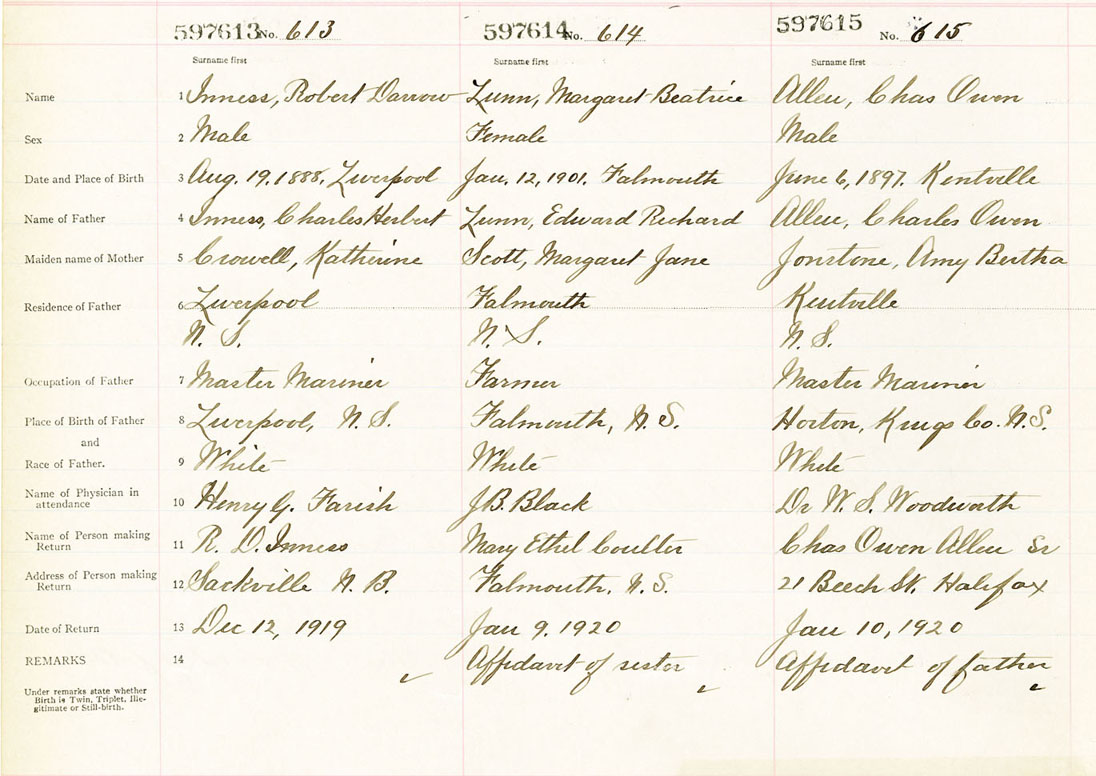 597613 No. 613 597614 No. 614 597615 No. 615
Surname first Surname first Surname first
Name 1 Inness, Robert Darrow Lunn, Margaret Beatrice Allen, Chas Owen
Sex 2 Male Female Male
Date and Place of Birth 3 Aug. 19. 1888. Liverpool Jan. 12, 1901. Falmouth June 6, 1897. Kentville
Name of Father 4 Inness, Charles Herbert Lunn, Edward Richard Allen, Charles Owen
Maiden name of Mother 5 Crowell, Katherine Scott, Margaret Jane Jonstone, Amy Bertha
Residence of Father 6 Liverpool Falmouth Kentville
N. S. N. S. N. S.
Occupation of Father 7 Master Mariner Farmer Master Mariner
Place of Birth of Father 8 Liverpool, N. S. Falmouth, N. S. Horton, Kings Co. N. S.
and
Race of Father. 9 White White White
Name of Physician in
attendance 10 Henry G. Farish J. B. Black Dr W. S. Woodworth
Name of Person making
Return 11 R. D. Inness Mary Ethel Coulter Chas Owen Allen Sr
Address of Person making
Return 12 Sackville N. B. Falmouth. N. S. 21 Beech St. Halifax
Date of Return 13 Dec 12, 1919 Jan 9. 1920 Jan 10, 1920
REMARKS 14 Affidavit of sister Affidavit of father
Under remarks state whether
Birth is Twin, Triplet, Ille-
gitimate or Still-birth.